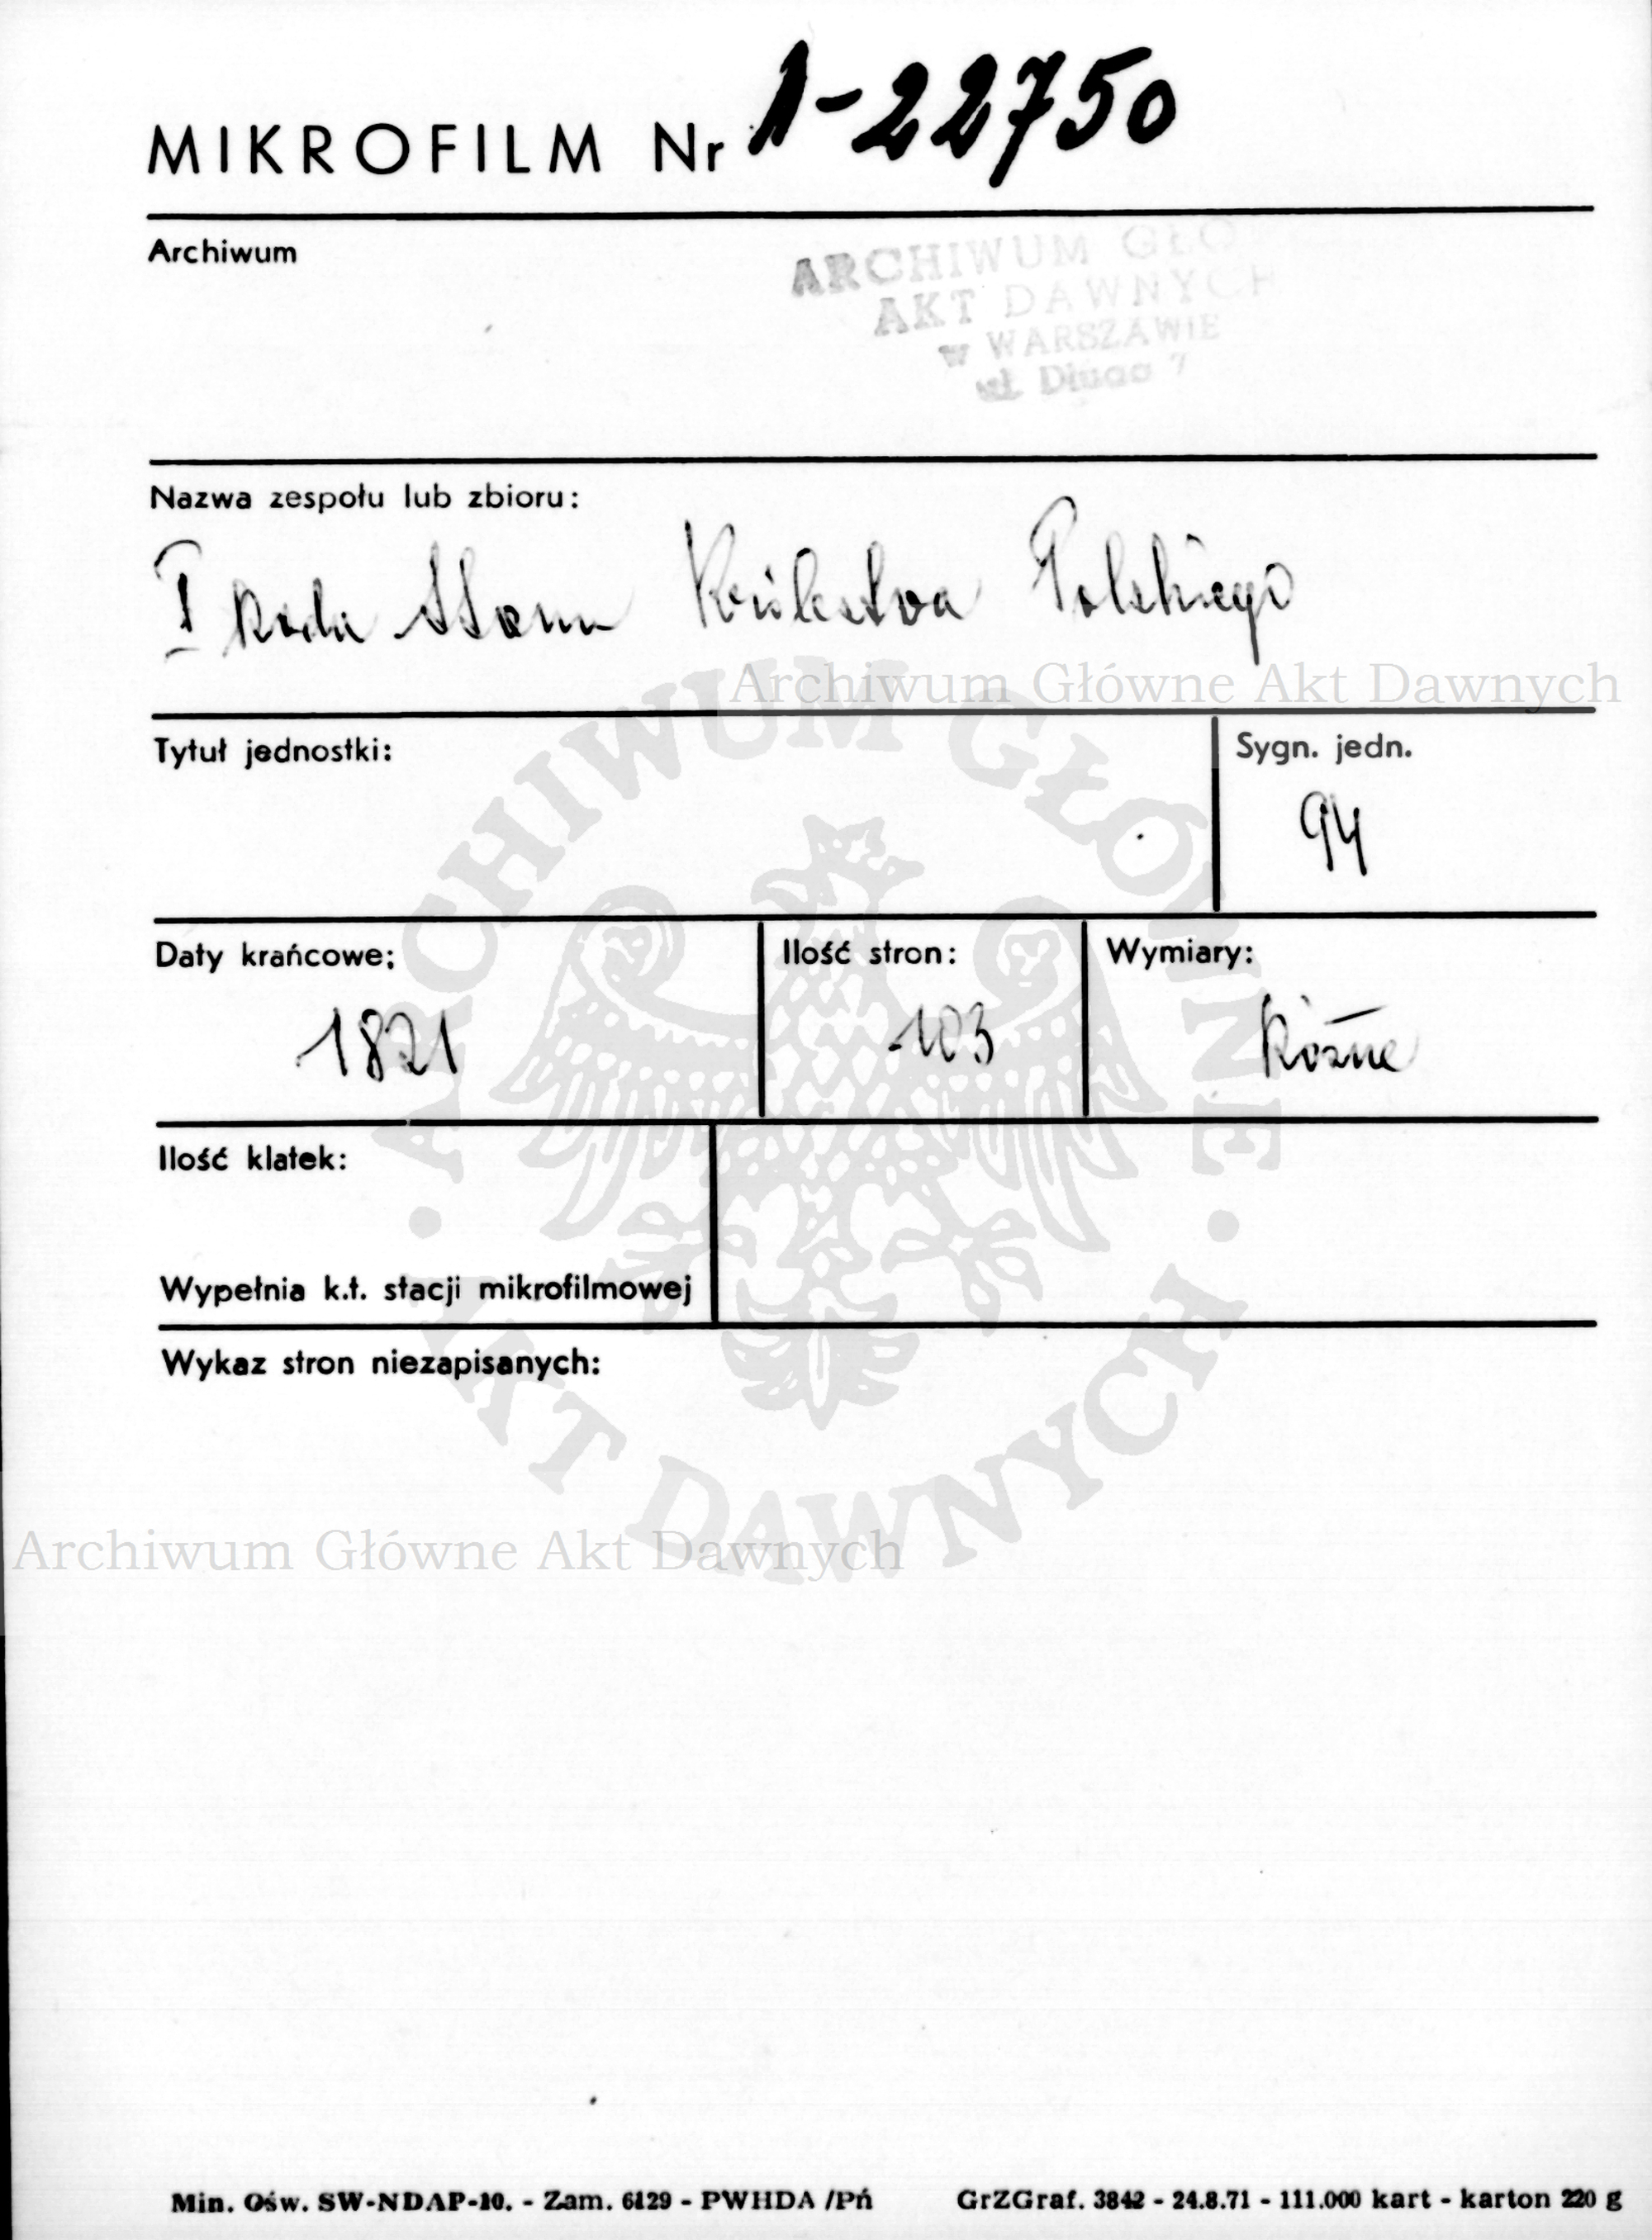 MIKROFILM Nr 1-22750
Archiwum
ARCHIWUM GŁO
AKT DAWNYCH
w WARSZAWIE
ul. Długa 7
Nazwa zespołu lub zbioru:
I Rada Stanu Królestwa Polskiego
Archiwum Główne Akt Dawnych
Tytuł jednostki:
Sygn. jedn.
94
Daty krańcowe;
Ilość stron:
Wymiary:
1821
103
Różne
Ilość klatek:
Wypełnia k.t. stacji mikrofilmowej
Wykaz stron niezapisanych:
ARCHIWUM GŁÓWNE
· AKT DAWNYCH ·
Archiwum Główne Akt Dawnych
Min. Ośw. SW-NDAP-10. - Zam. 6129 - PWHDA /Pń GrZGraf. 3842 - 24.8.71 - 111.000 kart - karton 220 g